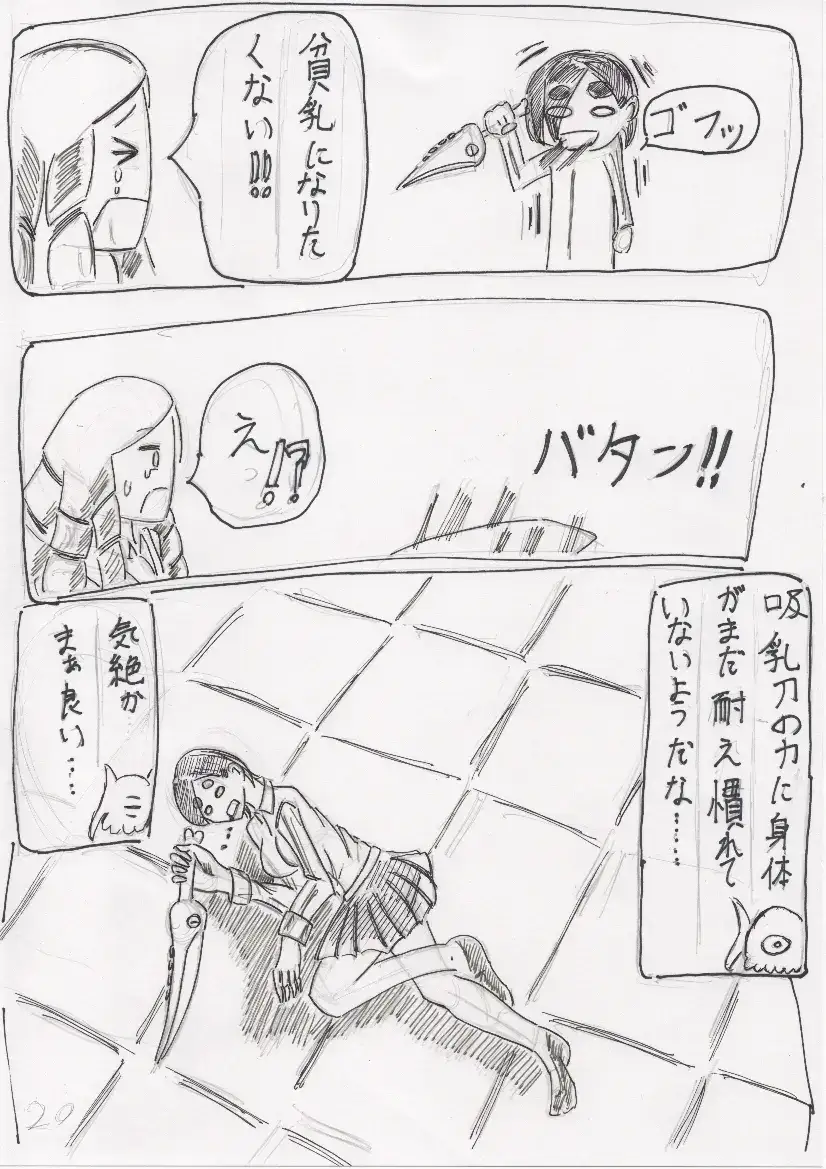 ゴフッ
貧乳になりた
くない!!
バタン!!
え!?
吸乳刀の力に身体
がまだ耐え慣れて
いないようだな……
気絶か…
まぁ良い…
20